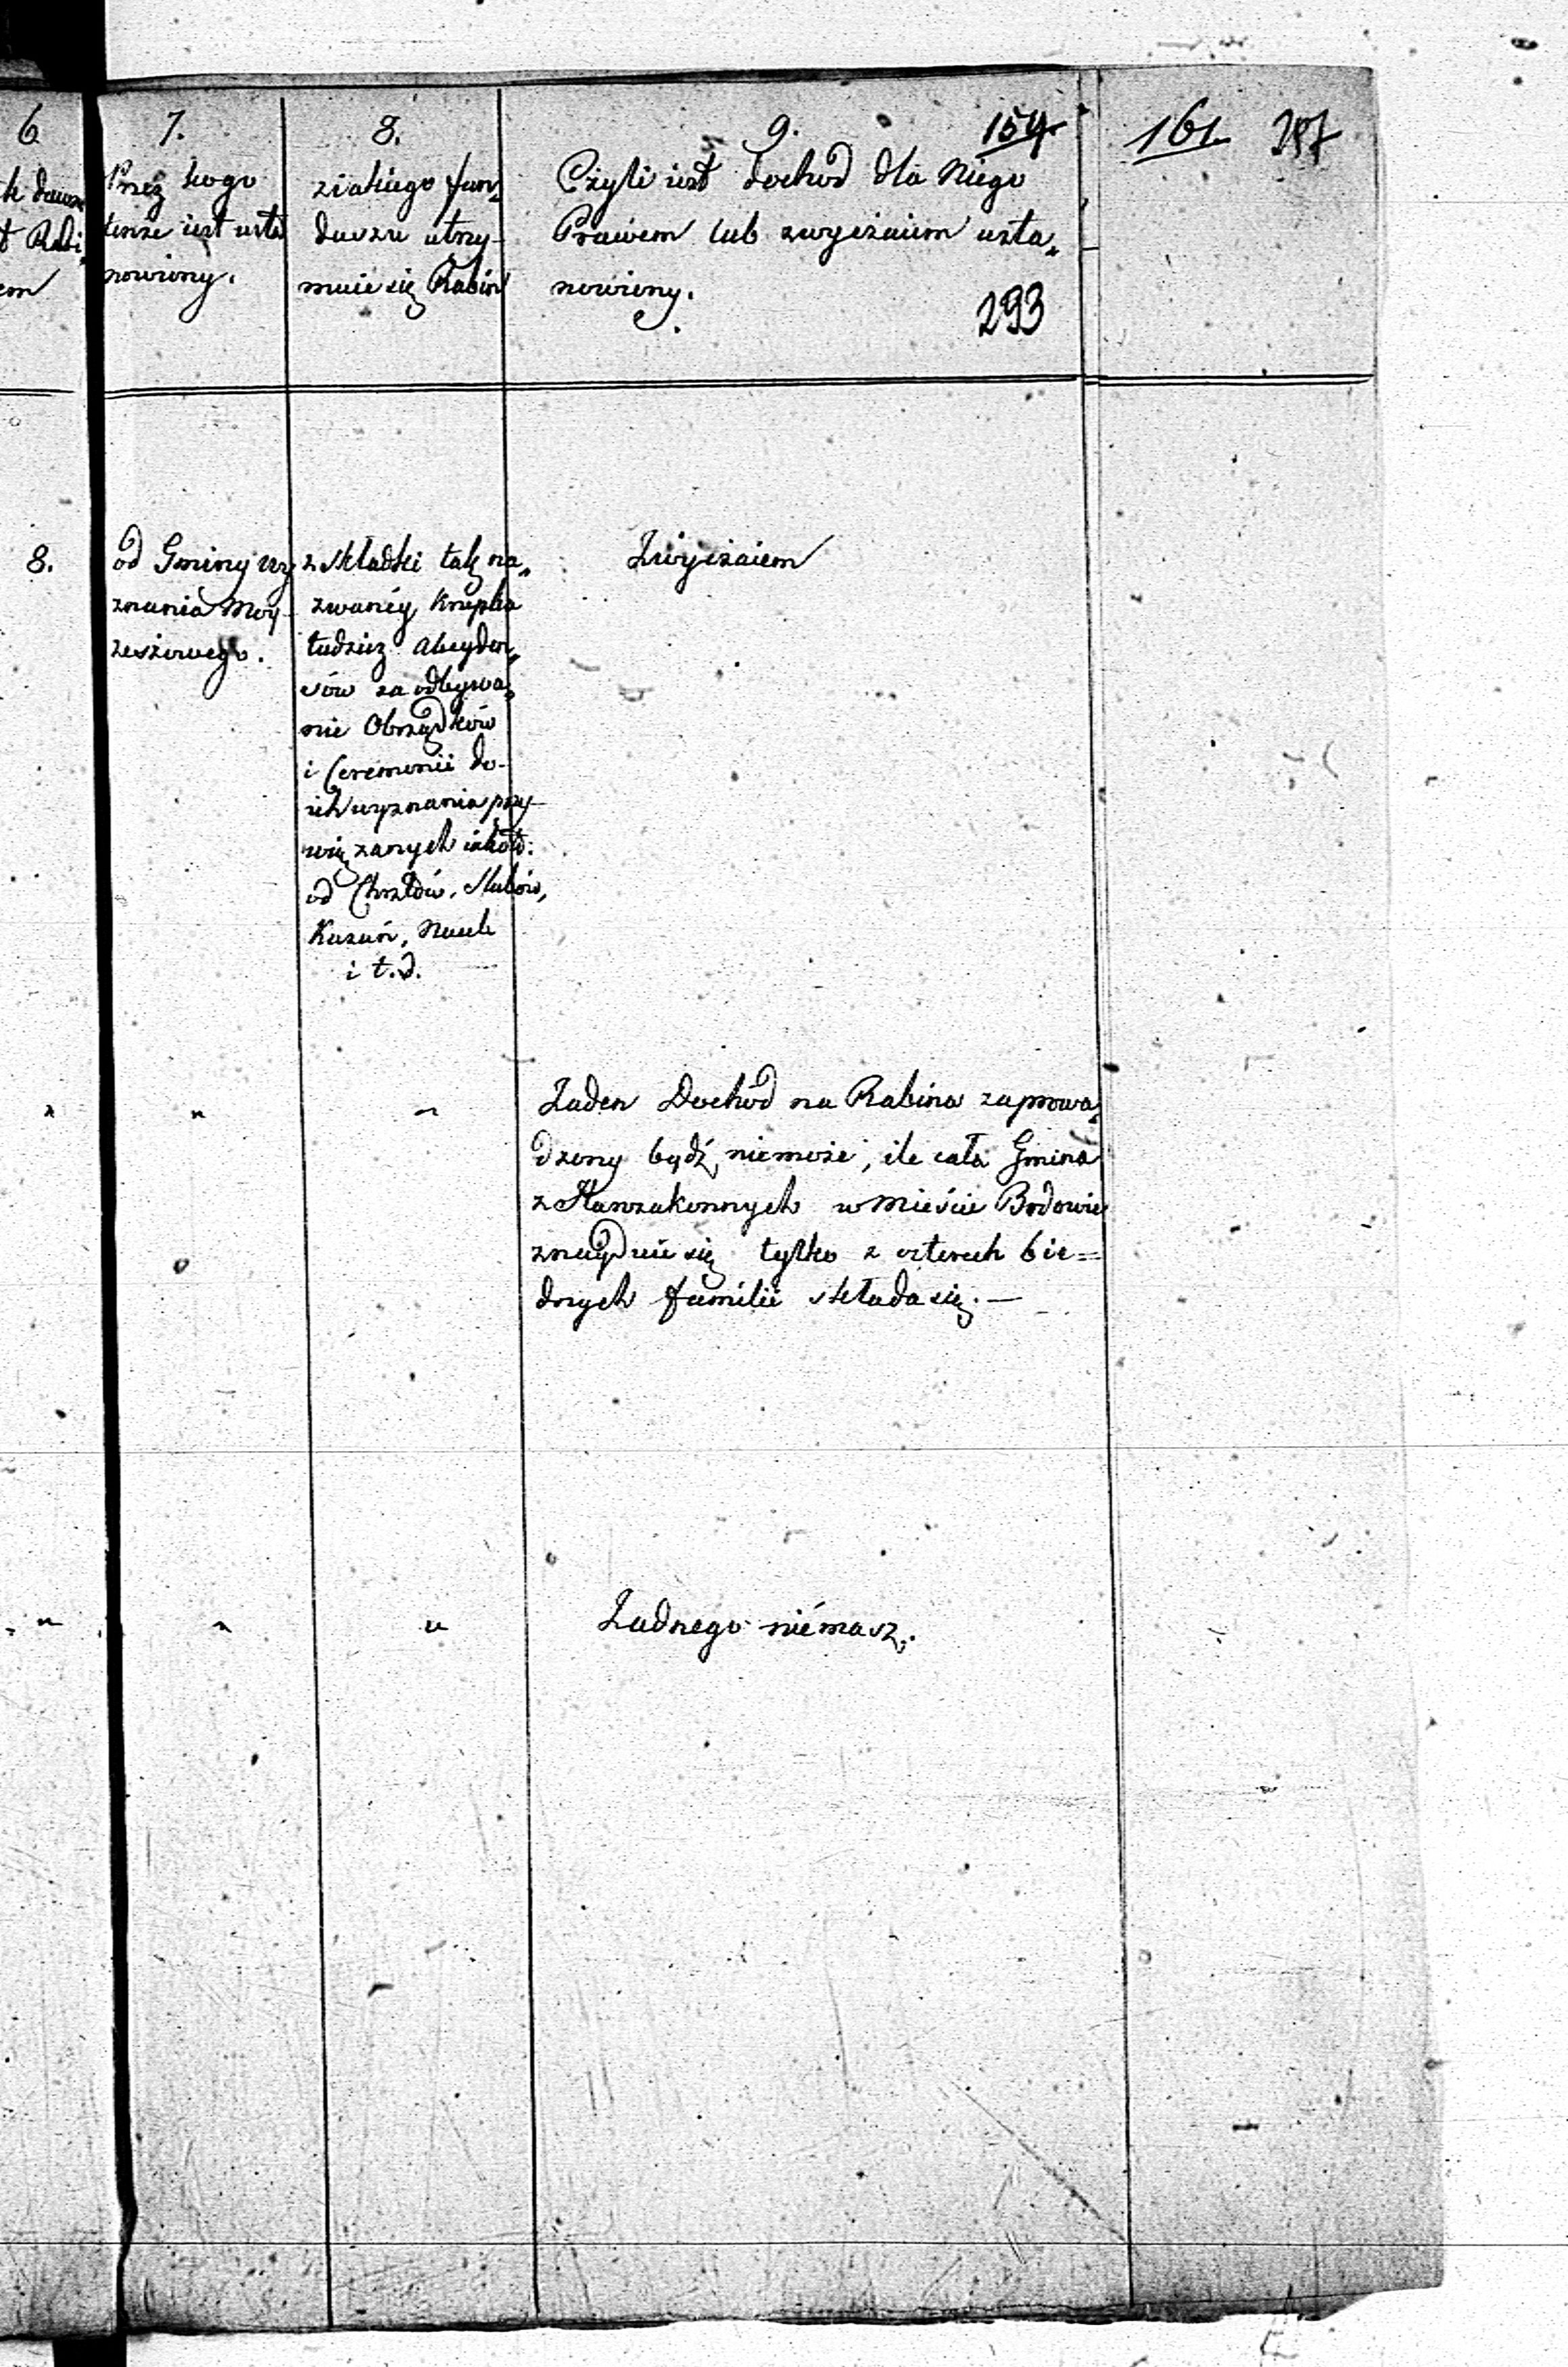 6.
7.
8.
9.
154
161.
Przez kogo
tenże iest usta
nowiony.
z iakiego fun„
duszu utrzy-
muie się Rabin
Czyli iest dochod dla Niego
Prawem lub zwyczaiem usta„
nowiony.
293
8.
od Gminy wy
znania Moy
zeszowego.
z składki tak na„
zwanéy Krupka
tudzież
sów za odbywa„
nie Obrządków
i Ceremonii do-
ich wyznania przy-
wiązanych iakoto:
od Chrztów, Slubów,
Kazań, Nauk
i t. d.
Zwyczaiem
Żaden Dochód na Rabina zaprowa„
dzony bydź niemoże, ile cała Gmina
z Starozakonnych w Mieście Bodowie
znayduie się tylko z czterech bie=
dnych familii składa się. —
Żadnego niémasz.